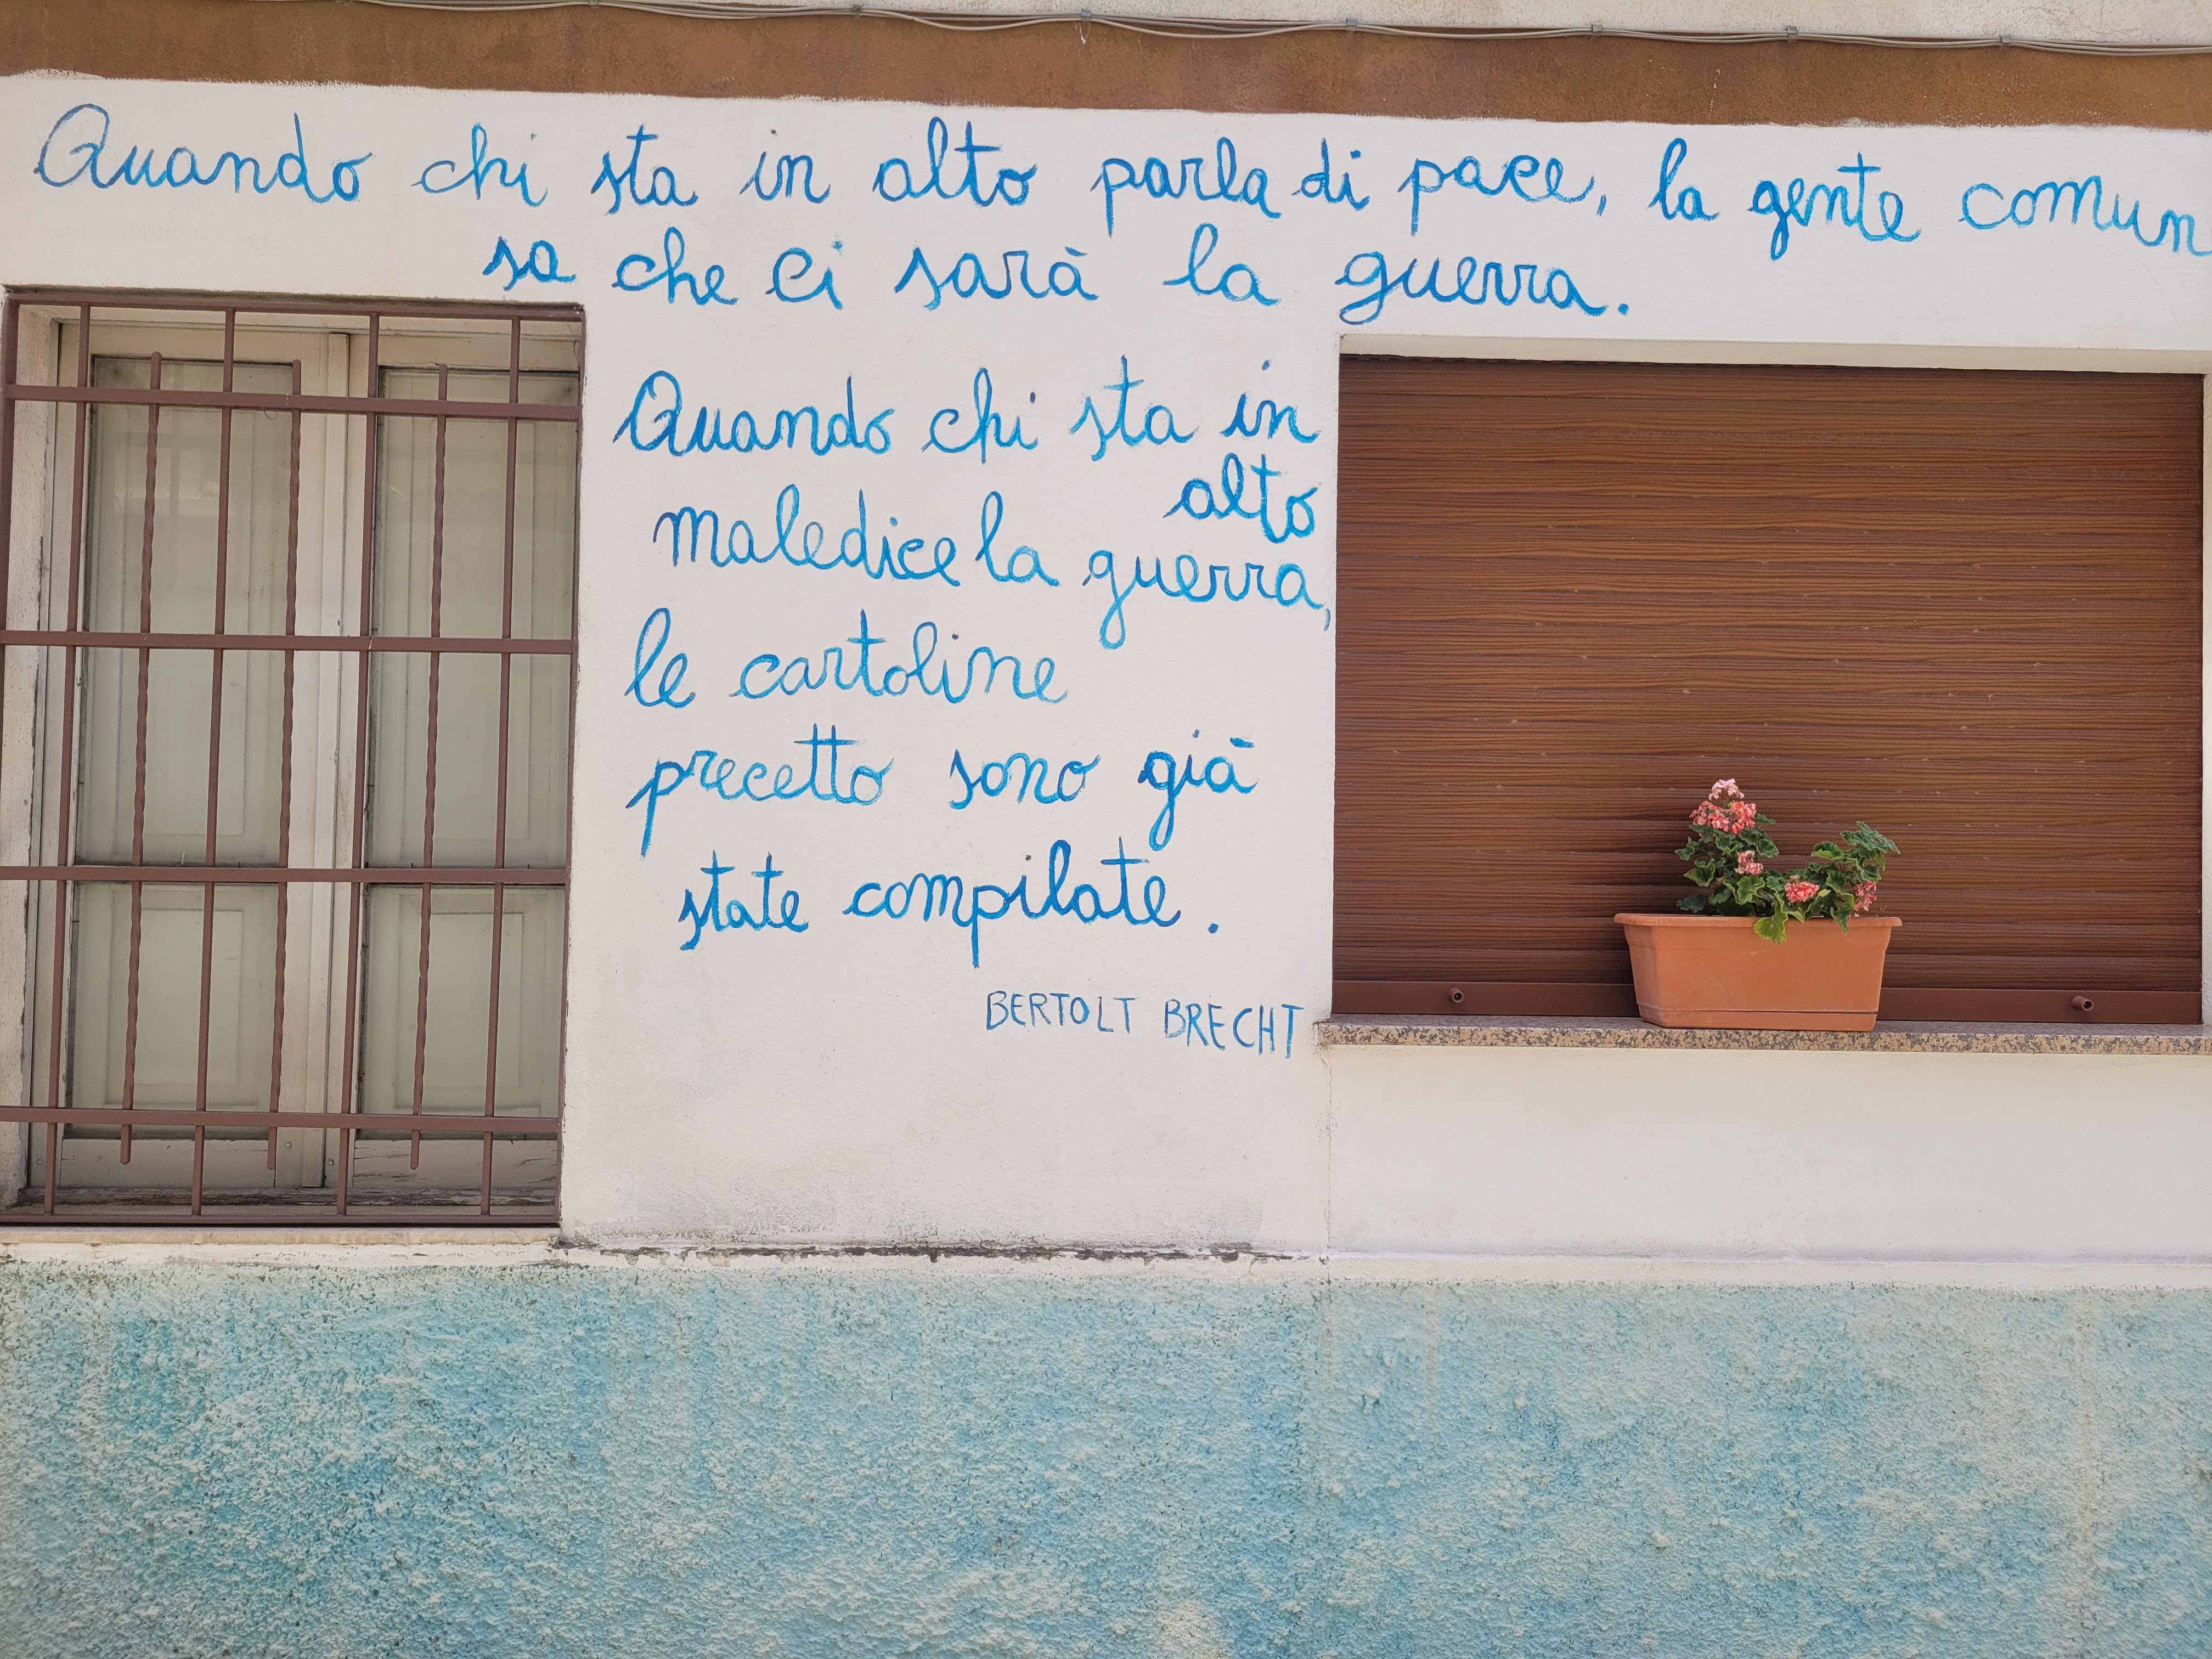 Quando chi sta in alto parla di pace, la gente comun
sa che ci sarà la guerra.
Quando chi sta in
alto
maledice la guerra,
le cartoline
precetto sono già
state compilate.
BERTOLT BRECHT